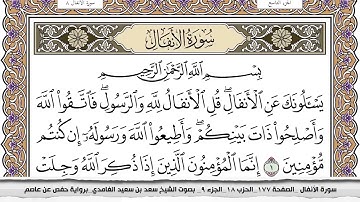 الجزء التاسع
سورة الأنفال ٨
سُورَةُ الأَنفَالِ
بِسْمِ اللَّهِ الرَّحْمَٰنِ الرَّحِيمِ
يَسْـَٔلُونَكَ عَنِ الْأَنفَالِ ۖ قُلِ الْأَنفَالُ لِلَّهِ وَالرَّسُولِ ۖ فَاتَّقُوا اللَّهَ
وَأَصْلِحُوا ذَاتَ بَيْنِكُمْ ۖ وَأَطِيعُوا اللَّهَ وَرَسُولَهُ إِن كُنتُم
مُّؤْمِنِينَ ١ إِنَّمَا الْمُؤْمِنُونَ الَّذِينَ إِذَا ذُكِرَ اللَّهُ وَجِلَتْ
سورة الأنفال _الصفحة ١٧٧ _الحزب ١٨ _الجزء ٩ _ بصوت الشيخ سعد بن سعيد الغامدي _برواية حفص عن عاصم